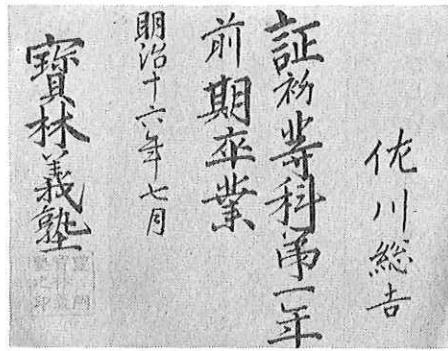 佐川総吉
証初等科第一年
前期卒業
明治十六年七月
寶林義塾